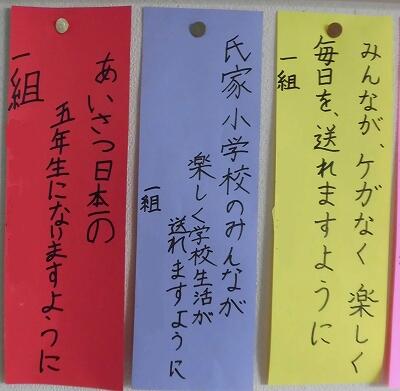 みんなが、ケガなく楽しく
毎日を、送れますように
一組
氏家小学校のみんなが
楽しく学校生活が
送れますように
一組
あいさつ日本一の
五年生になれますように
一組